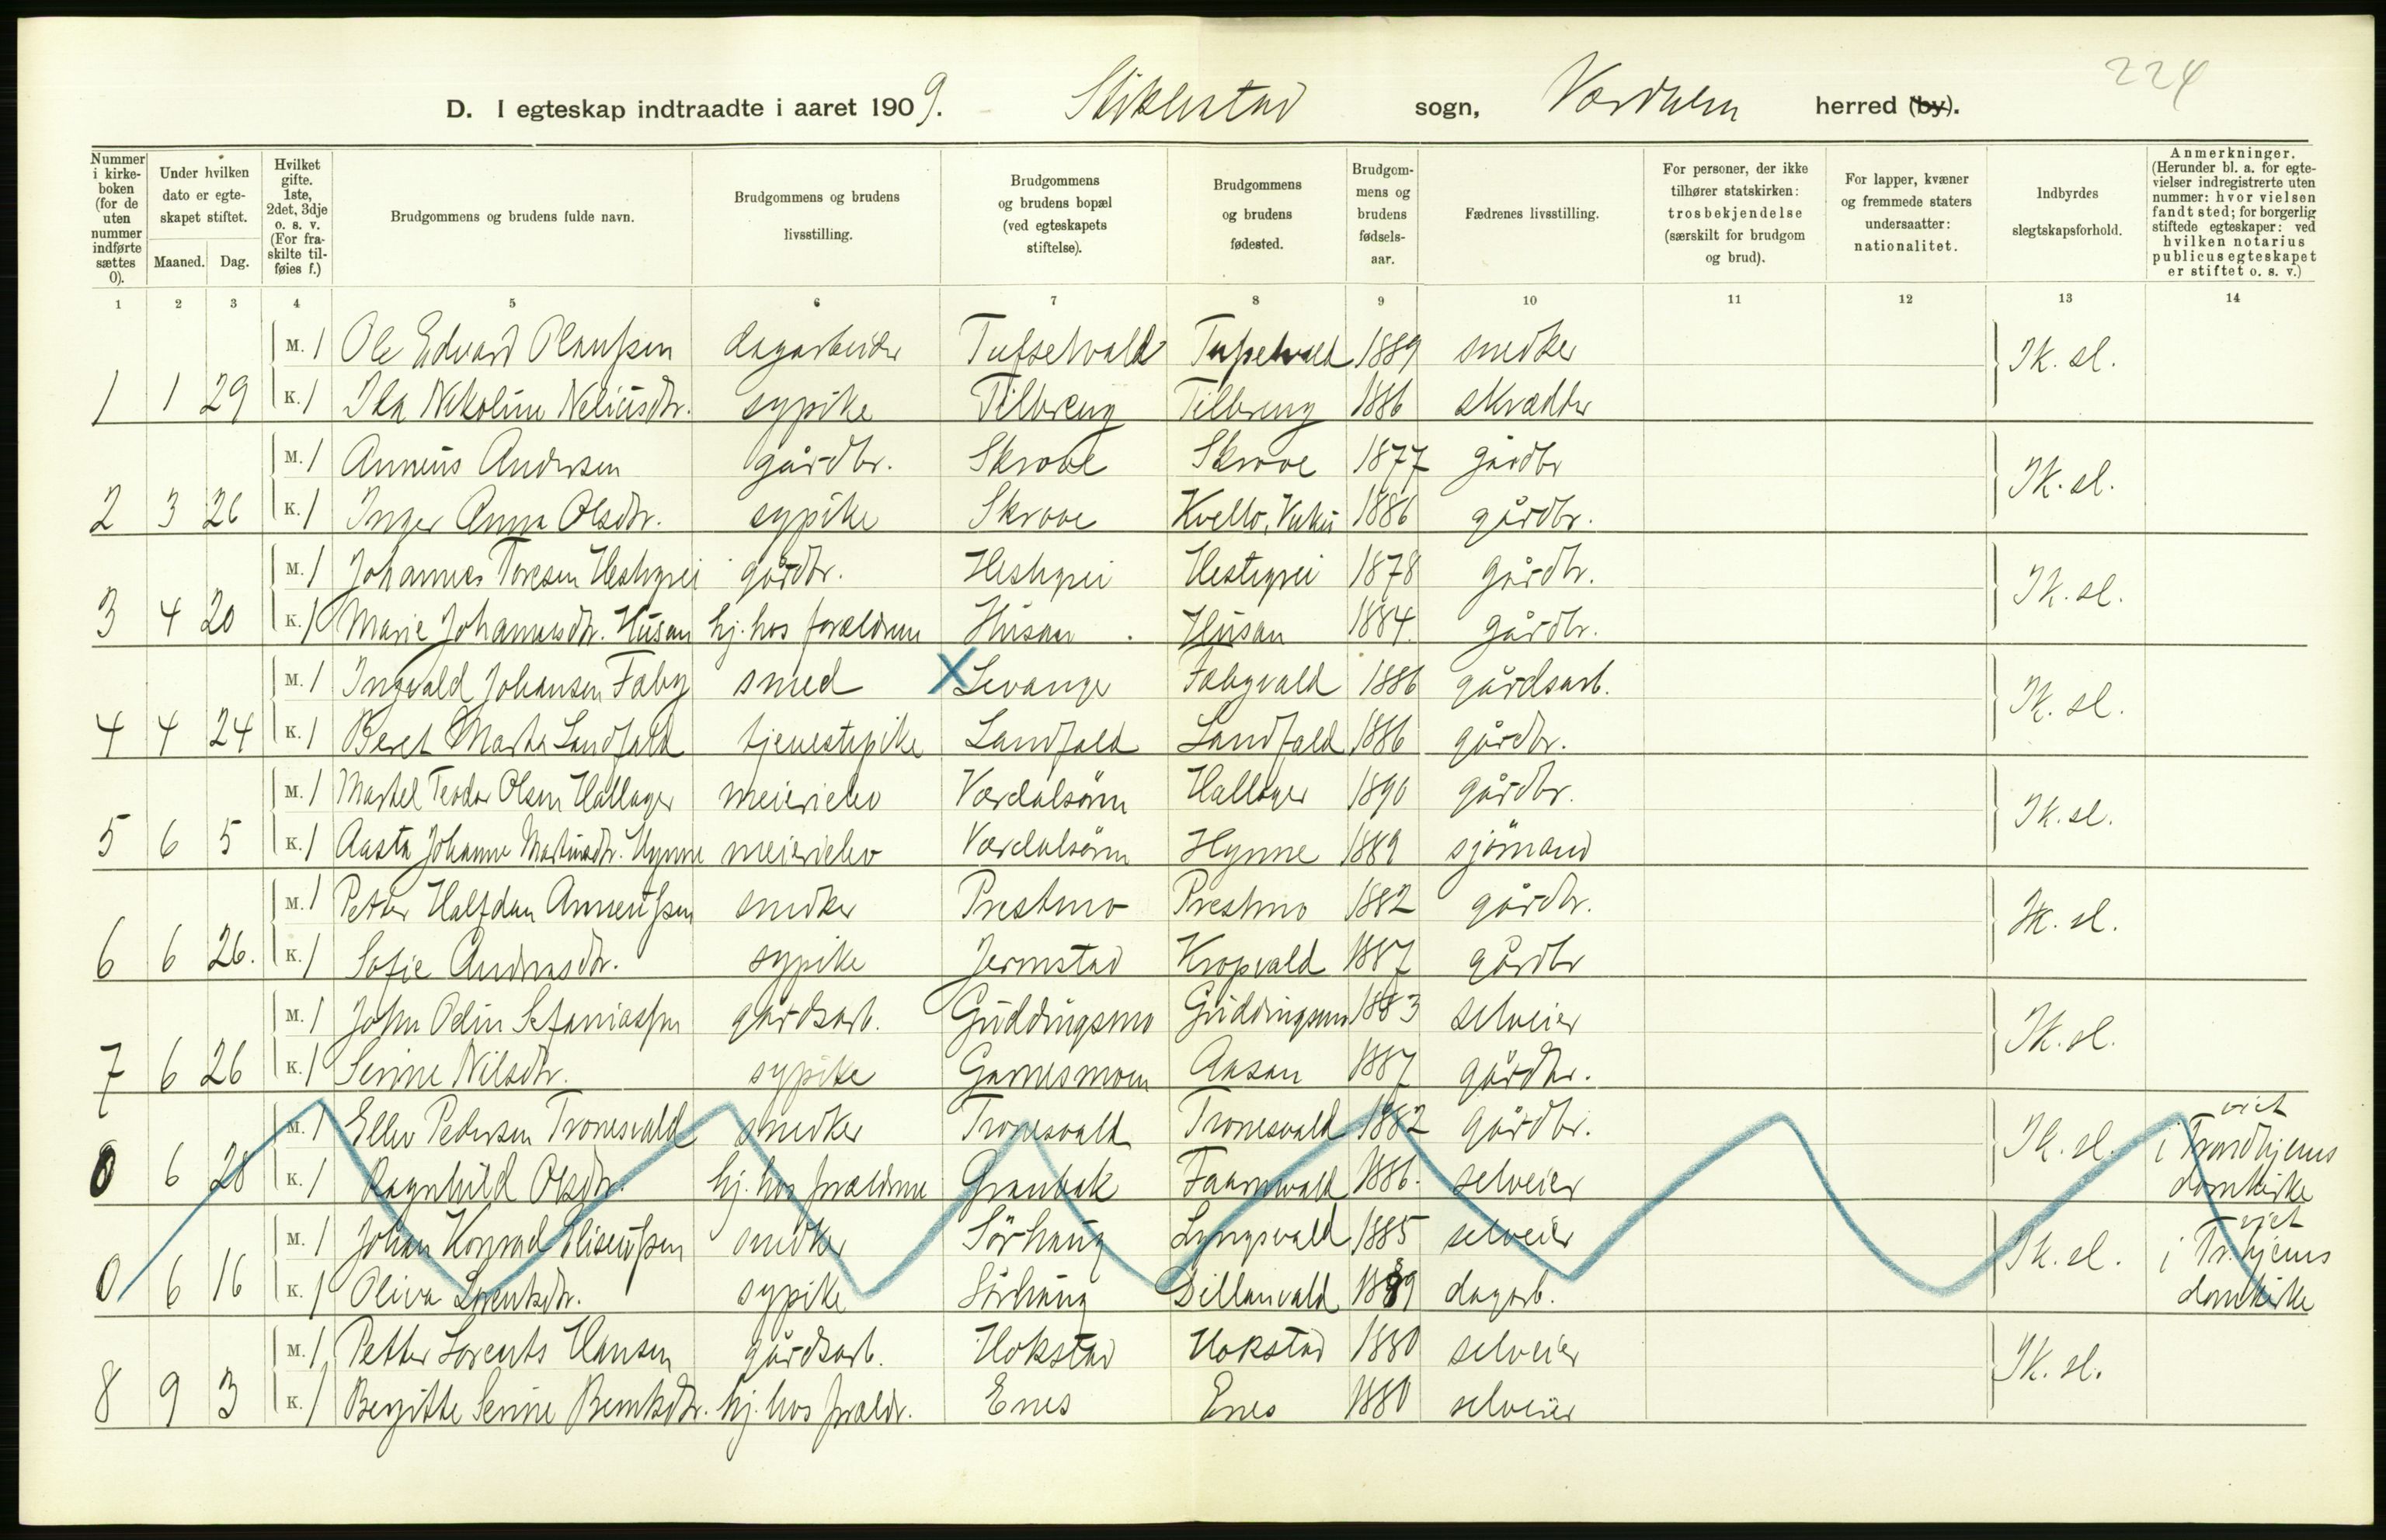 224
D. I egteskap indtraadte i aaret 1909. Stiklestad sogn, Værdalen herred (by).
Nummer i kirkeboken (for de uten nummer indførte sættes 0).
Under hvilken dato er egteskapet stiftet.
Maaned. Dag.
Hvilket gifte. 1ste, 2det, 3dje o. s. v. (For fraskilte tilføies f.)
Brudgommens og brudens fulde navn.
Brudgommens og brudens livsstilling.
Brudgommens og brudens bopæl (ved egteskapets stiftelse).
Brudgommens og brudens fødested.
Brudgommens og brudens fødselsaar.
Fædrenes livsstilling.
For personer, der ikke tilhører statskirken: trosbekjendelse (særskilt for brudgom og brud).
For lapper, kvæner og fremmede staters undersaatter: nationalitet.
Indbyrdes slegtskapsforhold.
Anmerkninger. (Herunder bl. a. for egtevielser indregistrerte uten nummer: hvor vielsen fandt sted; for borgerlig stiftede egteskaper: ved hvilken notarius publicus egteskapet er stiftet o. s. v.)
1 2 3 4 5 6 7 8 9 10 11 12 13 14
M. 1 Ole Edvard Olaussen dagarbeider Tufselvald Tufselvald 1889 snedker Ik. sl.
1 1 29 K. 1 Ida Nikoline Neliusdtr. sypike Tilbreng Tilbreng 1886 skrædder
M. 1 Anneus Andersen gårdbr. Skrove Skrove 1877 gårdbr Ik. sl.
2 3 26 K. 1 Inger Anna Olsdtr. sypike Skrove Kvello, Vuku 1886 gårdbr.
M. 1 Johannes Toresen Hestegrei gårdbr. Hestegrei Hestegrei 1878 gårdbr. Ik. sl.
3 4 20 K. 1 Marie Johannesdtr. Husan hj. hos forældrene Husan Husan 1884. gårdbr.
M. 1 Ingvald Johansen Faby smed X Levanger Fabyvald 1886 gårdsarb. Ik. sl.
4 4 24 K. 1 Beret Marta Landfald tjenestepike Landfald Landfald 1886 gårdbr.
M. 1 Martel Teodor Olsen Hallager meierielev Værdalsören Hallager 1890 gårdbr. Ik. sl.
5 6 5 K. 1 Aasta Johanne Martinsdtr. Hynne meierielev Værdalsören Hynne 1889 sjömand
M. 1 Petter Halfdan Anneussen snedker Prestmo Prestmo 1882 gårdbr. Ik. sl.
6 6 26. K. 1 Sofie Andreasdtr. sypike Jermstad Kropvald 1887 gårdbr
M. 1 John Odin Stefaniassen gårdsarb. Guddingsmo Guddingsmo 1883 selveier Ik. sl.
7 6 26 K. 1 Serine Nilsdtr. sypike Garnesmoen Aasan 1887 gårdbr.
M. 1 Ellev Pedersen Tronesvald snedker Tronesvald Tronesvald 1882 gårdbr. Ik. sl. viet
0 6 28 K. 1 Ragnhild Olsdtr. hj. hos forældrene Granbak 1886. selveier i Trondhjems domkirke
M. 1 Johan Konrad Eliseussen snedker Sörhaug Lyngsvald 1885 selveier Ik. sl. viet
0 6 16 K. 1 Oliva Lorentsdtr. sypike Sörhaug Dillanvald 1889 dagarb. i Tr.hjems domkirke
M. 1 Petter Lorents Hansen gårdsarb. Hokstad Hokstad 1880 selveier Ik. sl.
8 9 3 K. 1 Bergitte Serine Berntsdtr. hj. hos foreldr. Enes Enes 1880 selveier